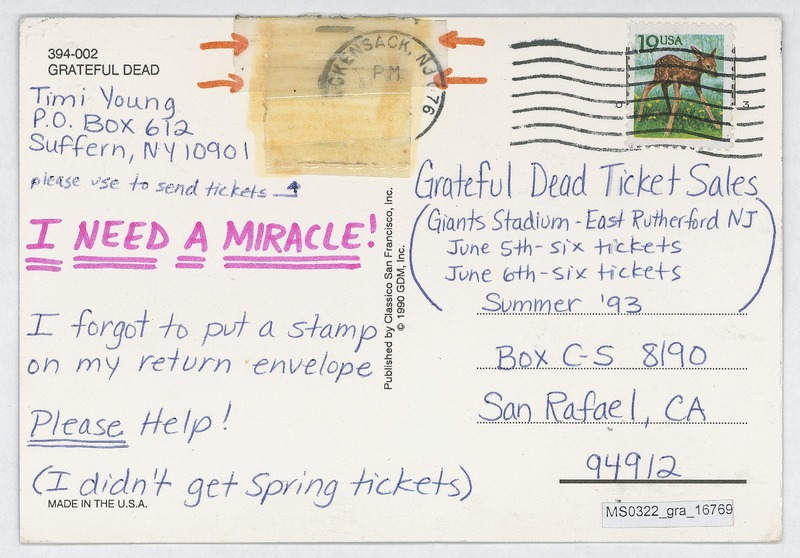 394-002
GRATEFUL DEAD
Timi Young
P.O. Box 612
Suffern, NY 10901
please use to send tickets
I NEED A MIRACLE!
I forgot to put a stamp
on my return envelope
Please Help!
(I didn't get Spring tickets)
MADE IN THE U.S.A.
Published by Classico San Francisco, Inc.
© 1990 GDM, Inc.
CKENSACK, NJ 076
PM
19 USA
93
Grateful Dead Ticket Sales
(Giants Stadium - East Rutherford NJ
June 5th - six tickets
June 6th - six tickets
Summer '93)
Box C-S 8190
San Rafael, CA
94912
MS0322_gra_16769